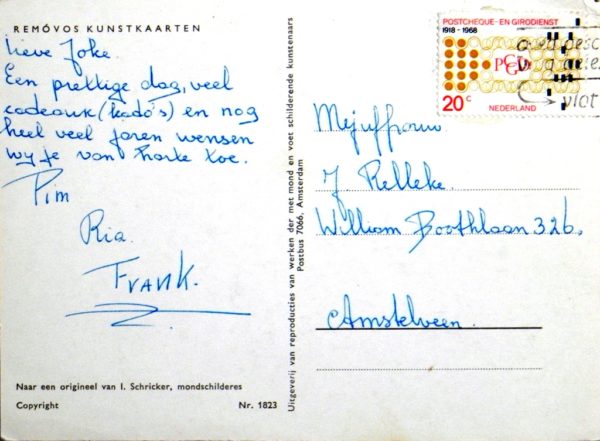 REMÓVOS KUNSTKAARTEN
Lieve Joke.
Een prettige dag, veel
cadeaux (kado's) en nog
heel veel jaren wensen
wy je van harte toe.
Pim
Ria.
Frank.
Naar een origineel van I. Schricker, mondschilderes
Copyright
Nr. 1823
Uitgeverij van reproducties van werken der met mond en voet schilderende kunstenaars
Postbus 7066, Amsterdam
POSTCHEQUE- EN GIRODIENST
1918 - 1968
PCGD
20c
NEDERLAND
vlot
Mejuffrouw.
J Relleke.
William Boothlaan 32b.
Amstelveen.